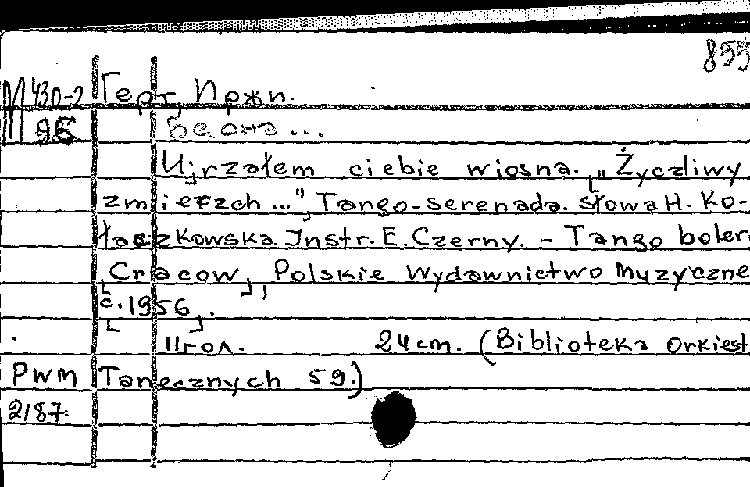 855
М 43п-2 Герт, Иржи.
96 Весна...
Ujrzałem ciebie wiosna. „Życzliwy
zmierzch...", Tango-serenada. słowa H. Ko-
łaczkowska. Instr. E. Czerny. - Tango boler.
[Cracow], Polskie Wydawnictwo Muzyczne
c. [1956].
11гол. 24 cm. (Biblioteka Orkiest
PWM Tanecznych 59.)
2187.